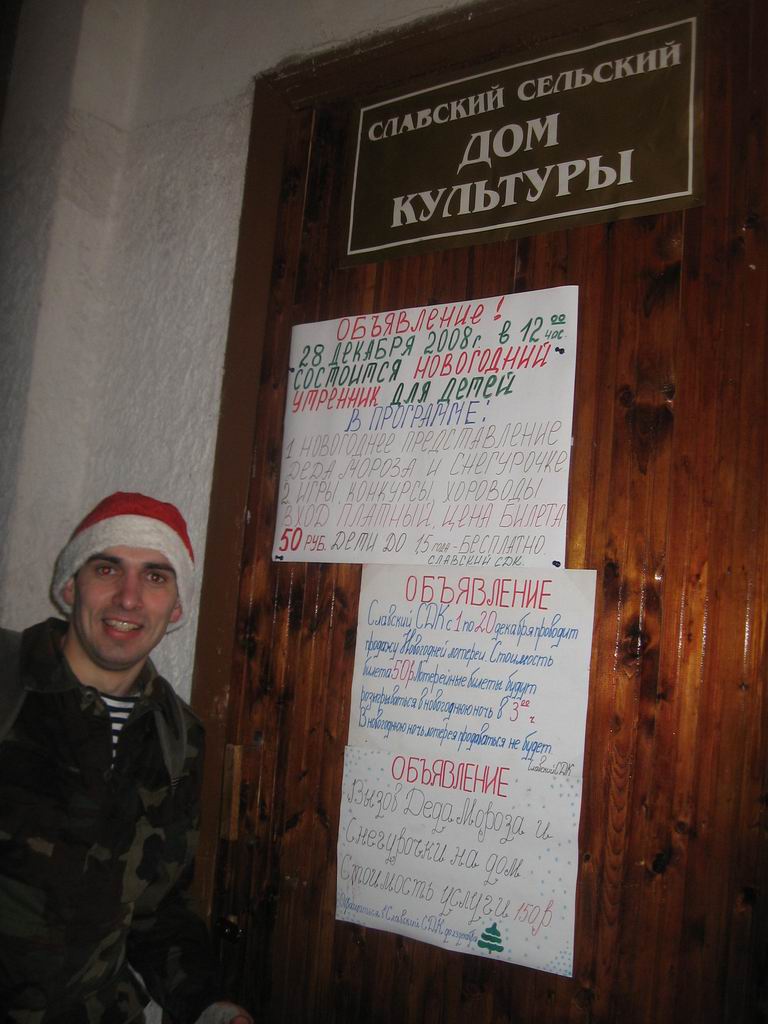 СЛАВСКИЙ СЕЛЬСКИЙ
ДОМ
КУЛЬТУРЫ
ОБЪЯВЛЕНИЕ!
28 ДЕКАБРЯ 2008г. в 12 00 час.
СОСТОИТСЯ НОВОГОДНИЙ
УТРЕННИК ДЛЯ ДЕТЕЙ
В ПРОГРАММЕ:
1 НОВОГОДНЕЕ ПРЕДСТАВЛЕНИЕ
ДЕДА МОРОЗА И СНЕГУРОЧКЕ
2 ИГРЫ, КОНКУРСЫ, ХОРОВОДЫ
ВХОД ПЛАТНЫЙ, ЦЕНА БИЛЕТА
50 РУБ. ДЕТИ ДО 1,5 года - БЕСПЛАТНО.
СЛАВСКИЙ СДК.
ОБЪЯВЛЕНИЕ
Славский СДК с 1 по 20 декабря проводит
продажу Новогодней лотереи. Стоимость
билета 50р Лотерейные билеты будут
разыгрываться в новогоднюю ночь в 3 00 ч
В новогоднюю ночь лотерея продаваться не будет
Славский СДК
ОБЪЯВЛЕНИЕ
Вызов Деда Мороза и
Снегурочки на дом
Стоимость услуги 150р
Обращаться в Славский СДК до декабря